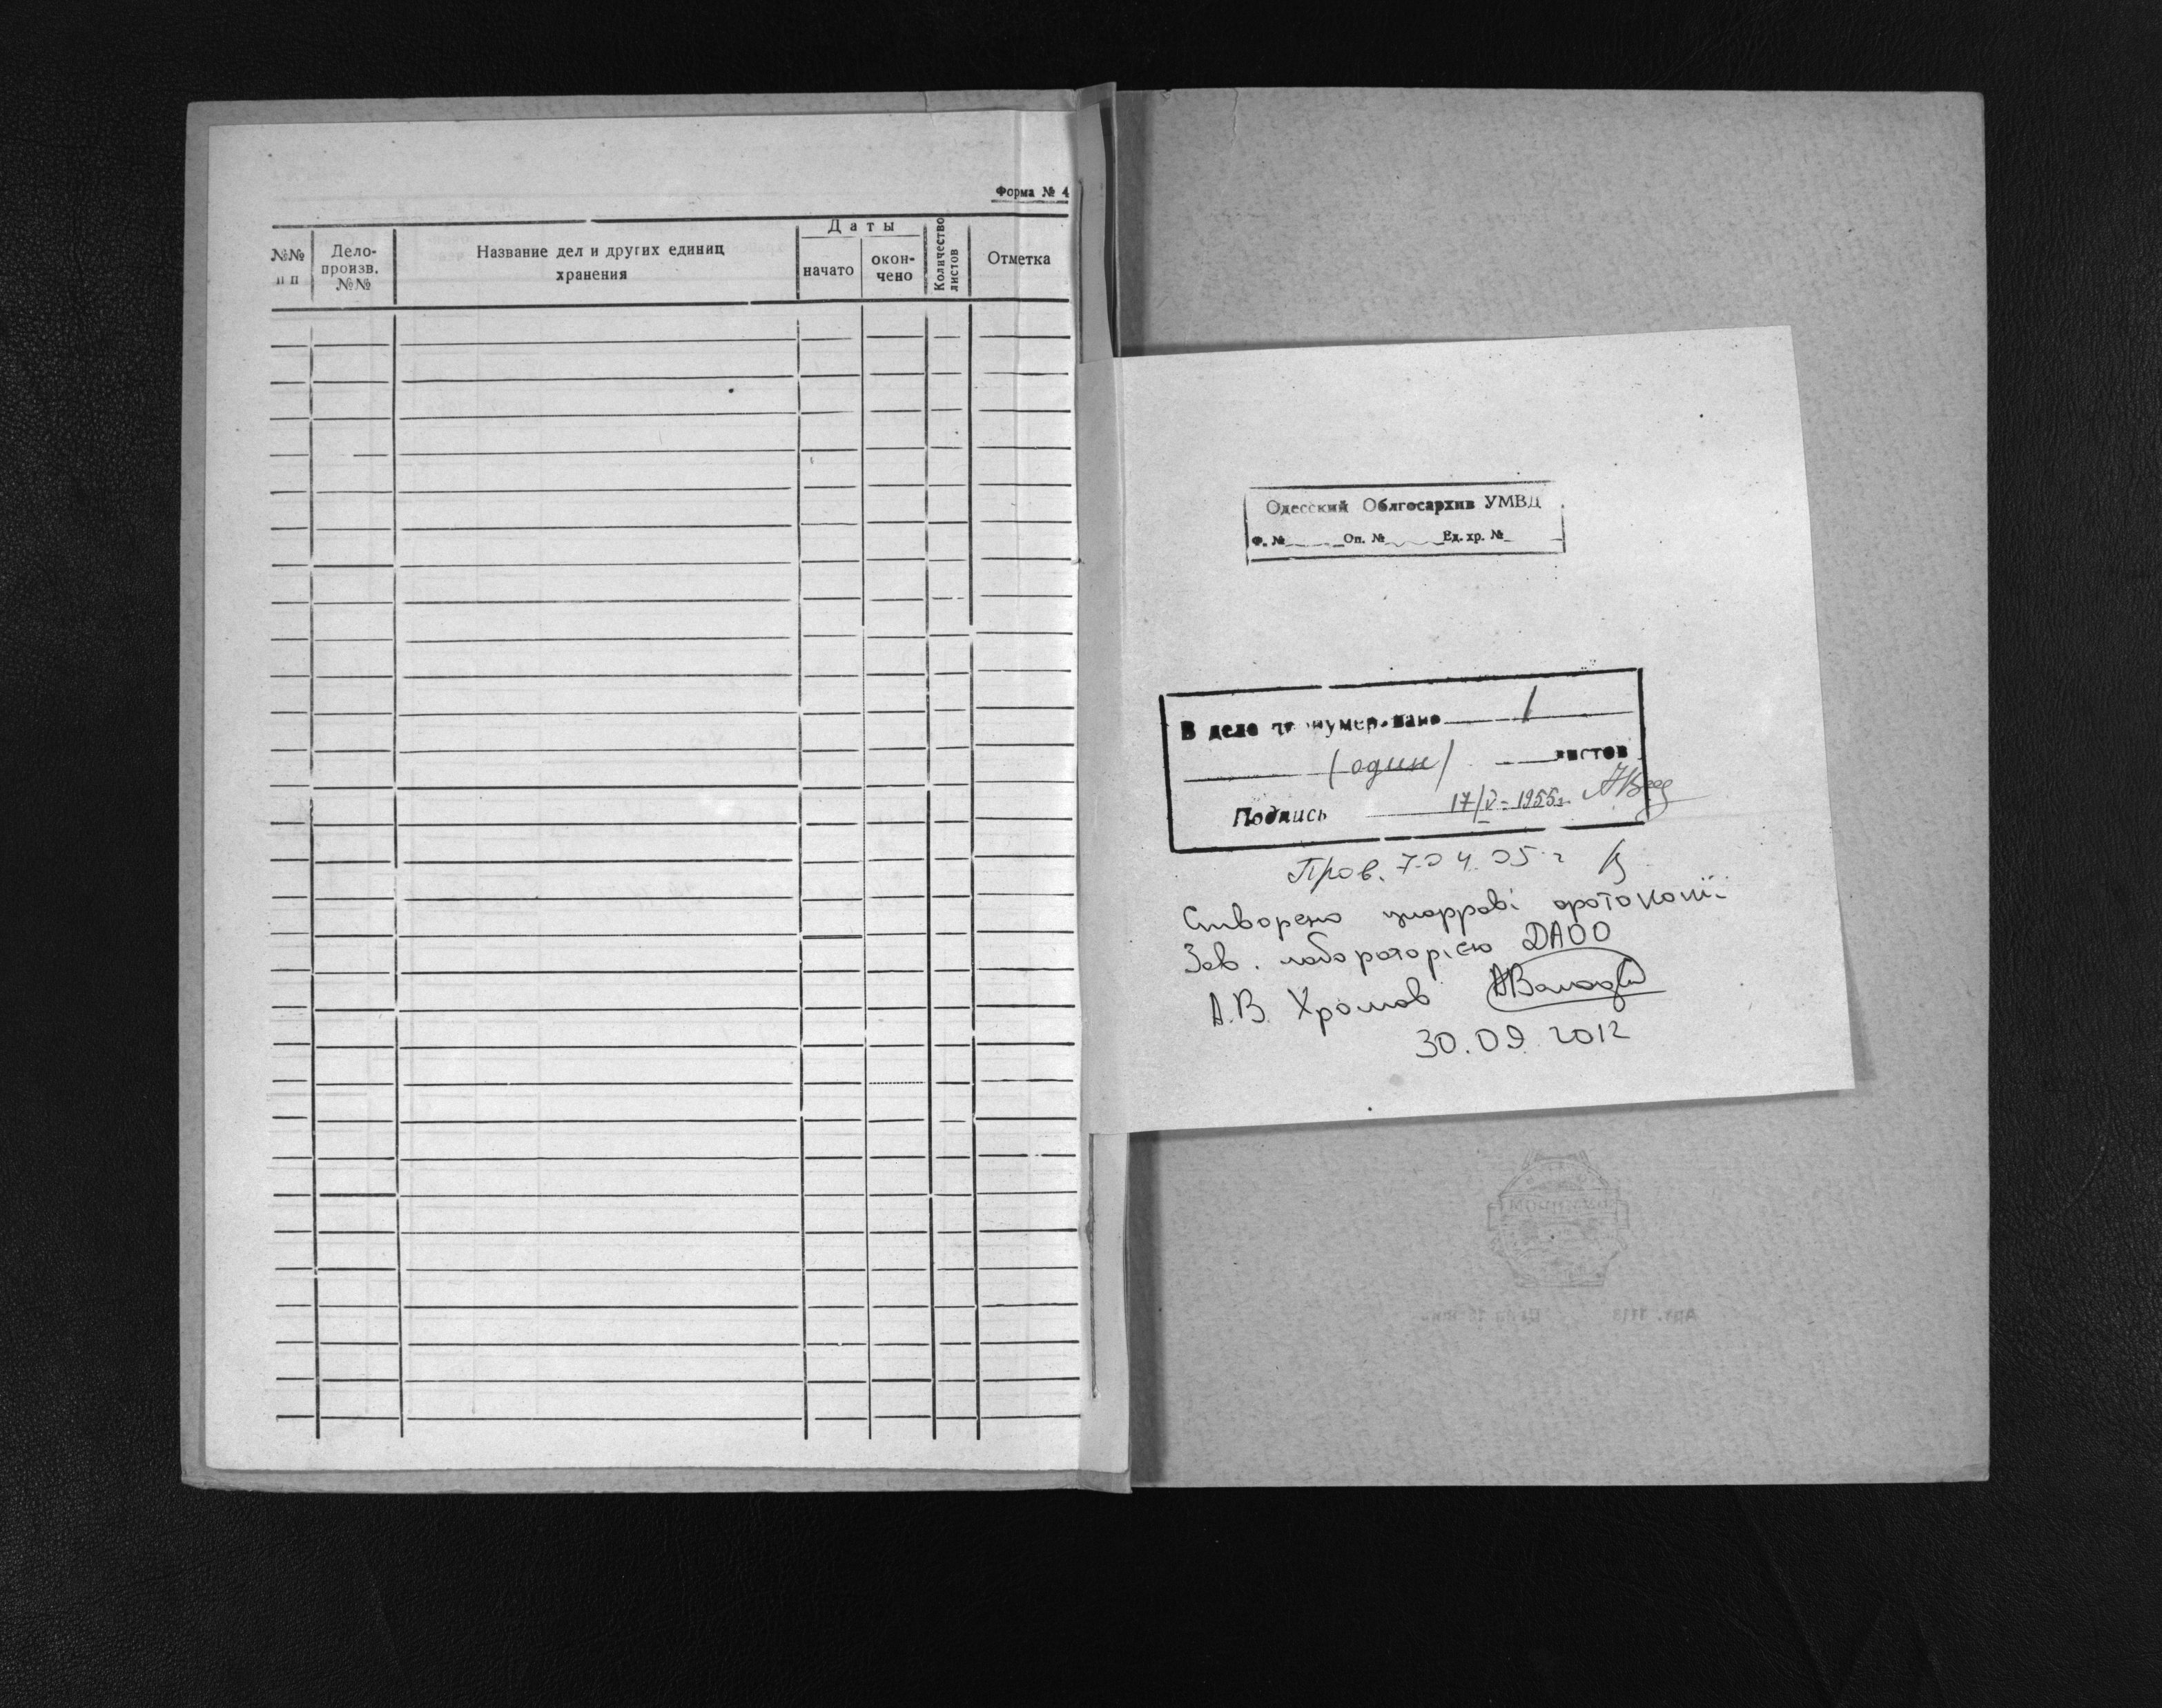 Форма № 4
№№
п п
Дело-
произв.
№№
Название дел и других единиц
хранения
Даты
начато
окон-
чено
Количество
листов
Отметка
Одесский Облгосархив УМВД
Ф. № Оп. № Ед. хр. №
В деле пронумеровано 1
(один) листов
Подпись 17/V-1955г.
Пров. 7.04.05 г
Створено цифрові фотокопії
Зав. лабораторією ДАОО
А.В. Хромов
30.09.2012